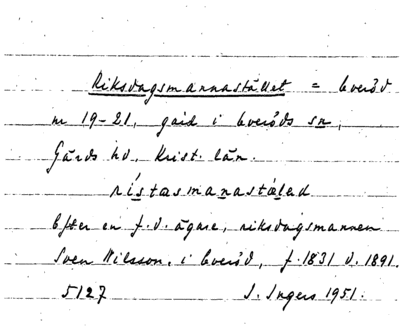 Riksdagsmannastället = Everöd
nr 19-21, gård i Everöds sn,
Gärds hd, Krist. län.
rístasmanastäled
Efter en f.d. ägare, riksdagsmannen
Sven Nilsson, i Everöd, f. 1831 d. 1891.
5127 I. Ingers 1951.